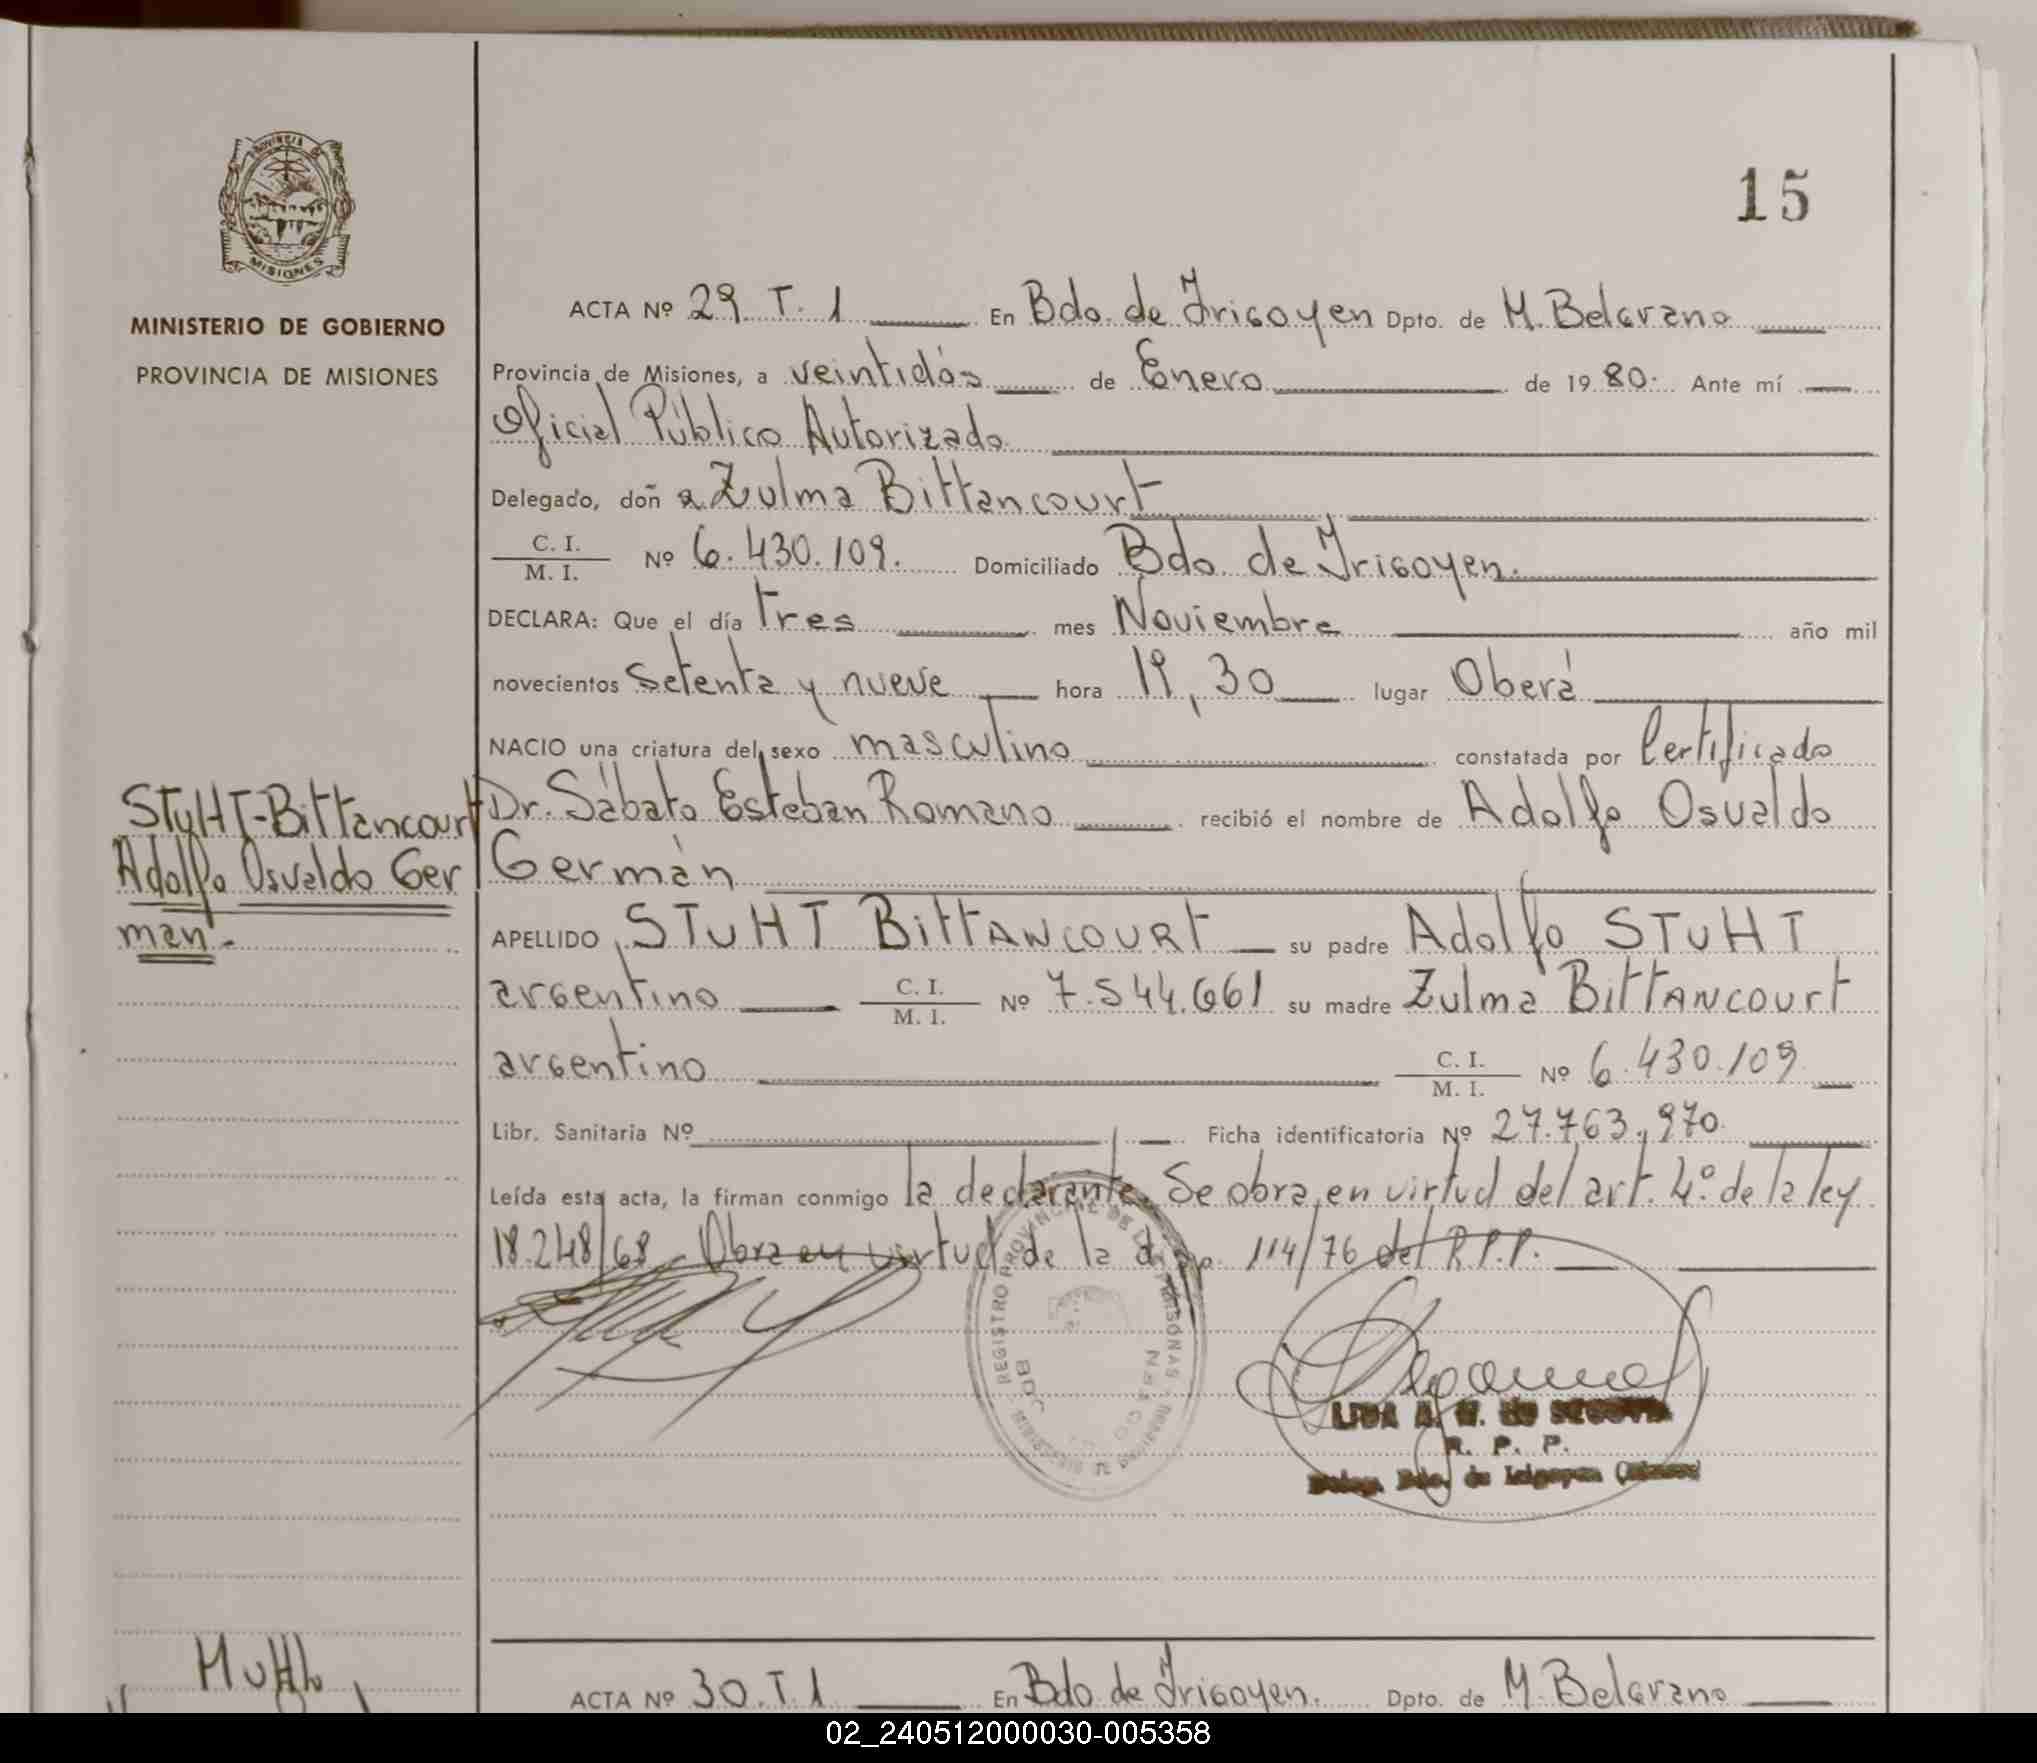 PROVINCIA DE
MISIONES
MINISTERIO DE GOBIERNO
PROVINCIA DE MISIONES
15
ACTA Nº 29. T. 1 En Bdo. de Irigoyen Dpto. de M. Belgrano
Provincia de Misiones, a veintidós de Enero de 1980. Ante mí
Oficial Público Autorizado
Delegado, doña Zulma Bittancourt
C. I. / M. I. Nº 6.430.109. Domiciliado Bdo. de Irigoyen.
DECLARA: Que el día tres mes Noviembre año mil
novecientos setenta y nueve hora 19,30 lugar Oberá
NACIO una criatura del sexo masculino constatada por Certificado
Dr. Sábato Esteban Romano recibió el nombre de Adolfo Osvaldo
Germán
APELLIDO STUHT BittANCOURt su padre Adolfo STUHT
argentino C. I. / M. I. Nº 7.544.661 su madre Zulma BittANCOURt
argentino C. I. / M. I. Nº 6.430.109
Libr. Sanitaria Nº Ficha identificatoria Nº 27.763.970
Leída esta acta, la firman conmigo la declarante. Se obra en virtud del art. 4º de la ley
18.248/68 - Obra en virtud de la disp. 114/76 del R.P.P.
STUHT-Bittancourt
Adolfo Osvaldo Ger
man.-
REGISTRO PROVINCIAL DE LAS PERSONAS
R. P. P.
Deleg. Bdo. de Irigoyen (Misiones)
ACTA Nº 30. T. 1 En Bdo. de Irigoyen. Dpto. de M. Belgrano
02_240512000030-005358